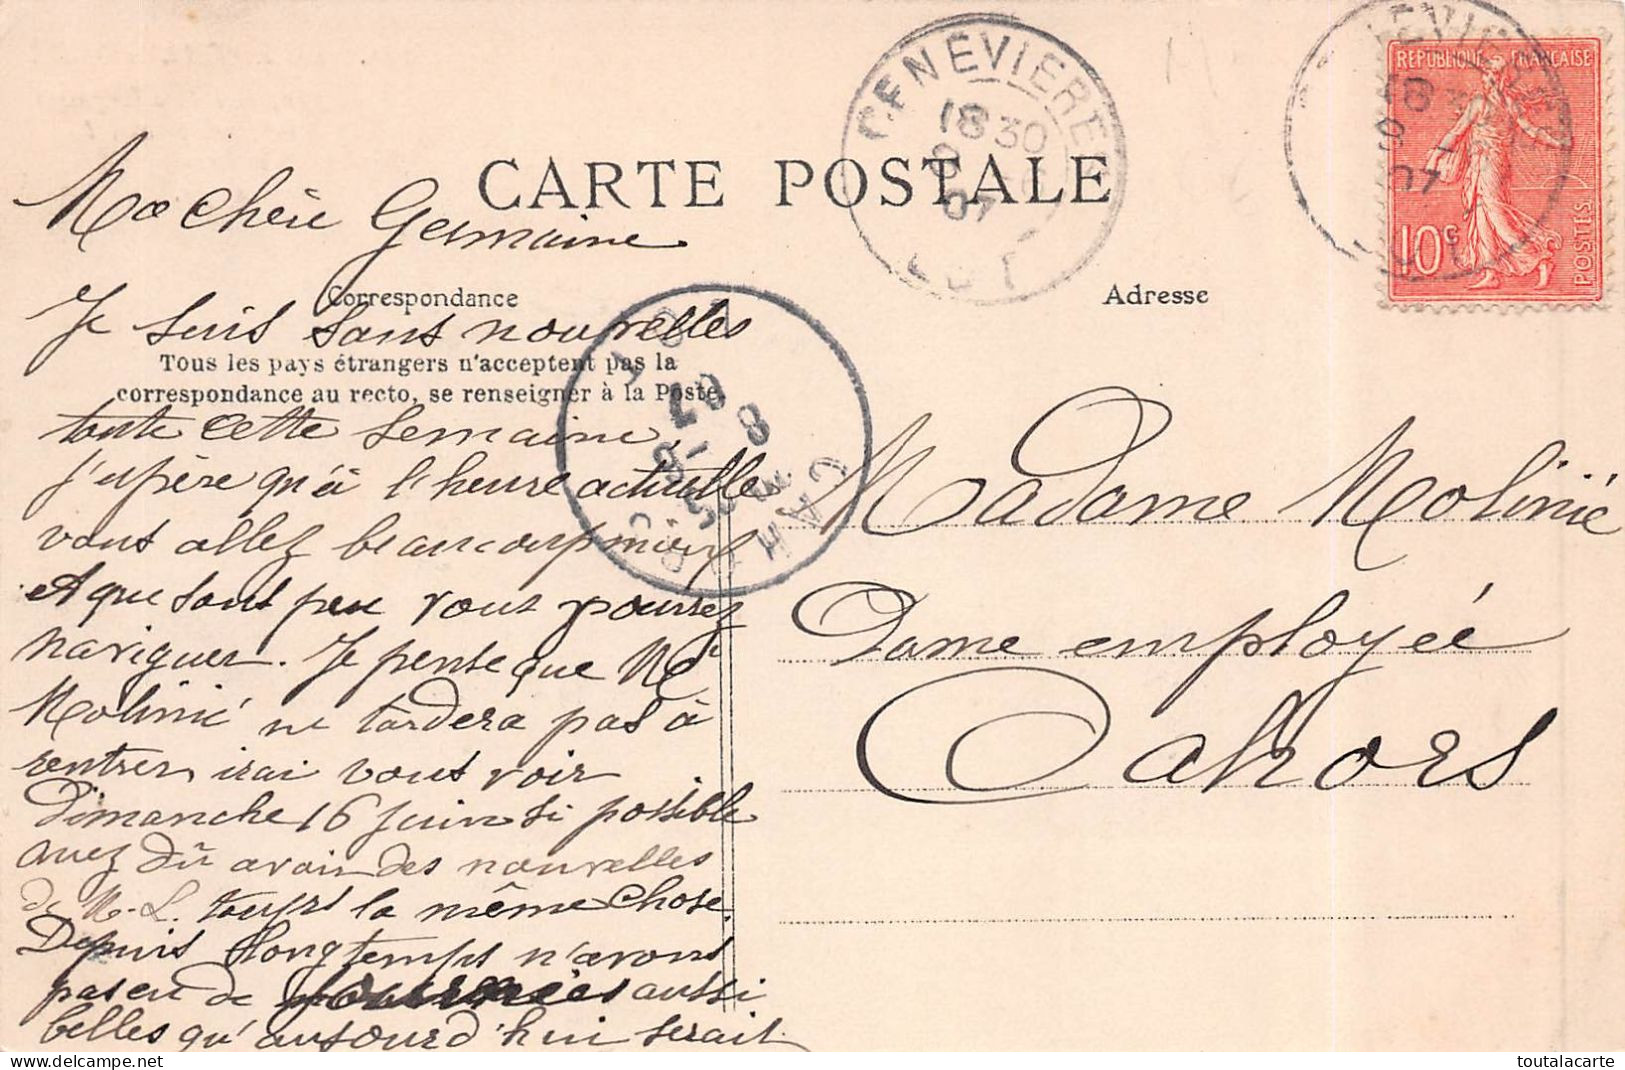 CARTE POSTALE
GENEVIERES
18 30
07
LOT
REPUBLIQUE FRANÇAISE
10c
POSTES
Ma Chère Germaine
Correspondance
Je suis sans nouvelles
Tous les pays étrangers n'acceptent pas la
correspondance au recto, se renseigner à la Poste.
toute cette semaine,
j'espère qu'à l'heure actuelle
vous allez beaucoup mieux
et que sous peu vous pourrez
naviguer. Je pense que Mr
Molinié ne tardera pas à
rentrer, irai vous voir
Dimanche 16 Juin si possible
avez dû avoir des nouvelles
de M.L. toujrs la même chose.
Depuis longtemps n'avons
pas eu de journées aussi
belles qu'aujourd'hui serait
CAHORS
LOT
Adresse
Madame Molinié
Dame employée
Cahors
toutalacarte